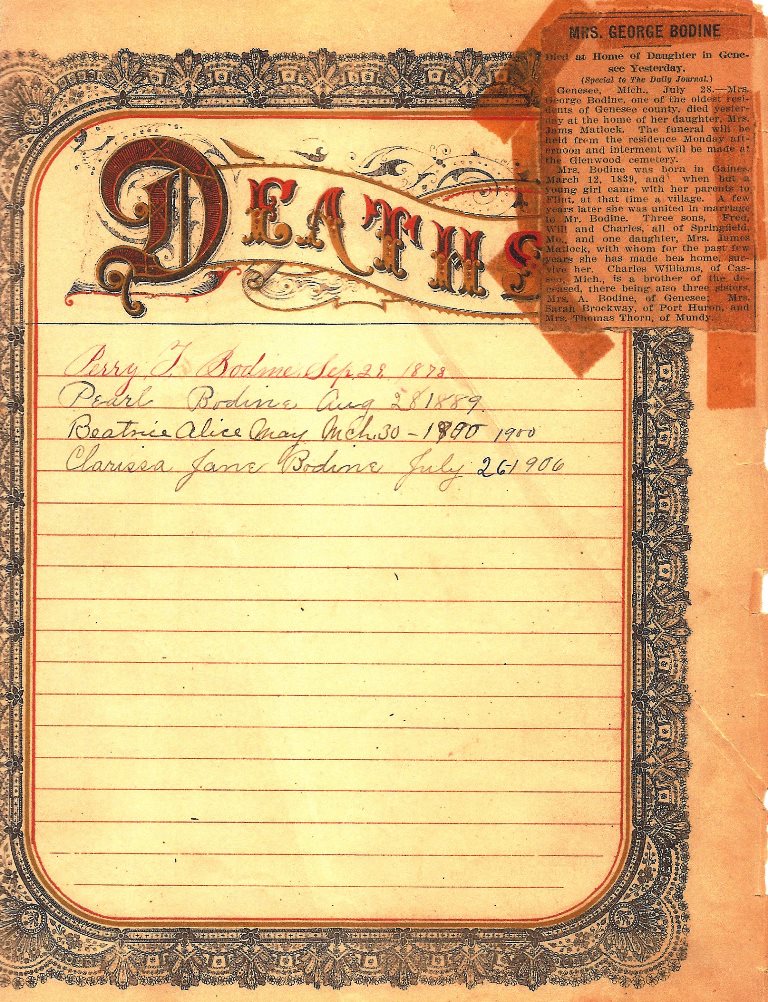 DEATHS
Perry T. Bodine Sep 28 1878
Pearl Bodine Aug 28 1889.
Beatrice Alice May Mch 30 - 1900 1900
Clarissa Jane Bodine July 26 1906
MRS. GEORGE BODINE
Died at Home of Daughter in Gene-
see Yesterday.
(Special to The Daily Journal.)
Genesee, Mich., July 28.—Mrs.
George Bodine, one of the oldest resi-
dents of Genesee county, died yester-
day at the home of her daughter, Mrs.
Jams Matlock. The funeral will be
held from the residence Monday aft-
ernoon and interment will be made at
the Glenwood cemetery.
Mrs. Bodine was born in Gaines,
March 12, 1839, and when but a
young girl came with her parents to
Flint, at that time a village. A few
years later she was united in marriage
to Mr. Bodine. Three sons, Fred,
Will and Charles, all of Springfield,
Mo., and one daughter, Mrs. James
Matlock, with whom for the past few
years she has made her home, sur-
vive her. Charles Williams, of Cas-
Mich., is a brother of the de-
ceased, there being also three sisters,
Mrs. A. Bodine, of Genesee; Mrs.
Sarah Brockway, of Port Huron, and
Mrs. Thomas Thorn, of Mundy.